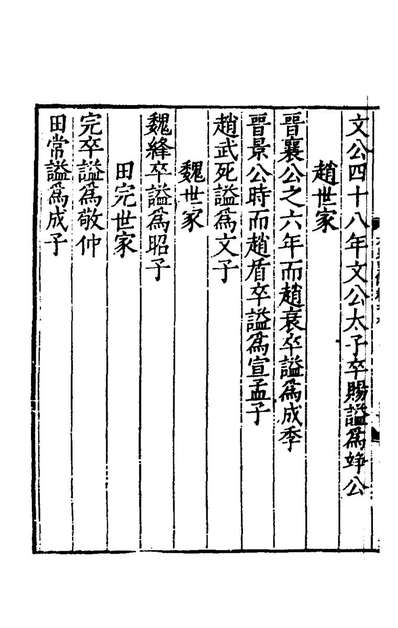 文公四十八年文公太子卒賜謚爲竫公
趙世家
晉襄公之六年而趙衰卒謚爲成季
晉景公時而趙盾卒謚爲宣孟子
趙武死謚爲文子
魏世家
魏絳卒謚爲昭子
田完世家
完卒謚爲敬仲
田常謚爲成子